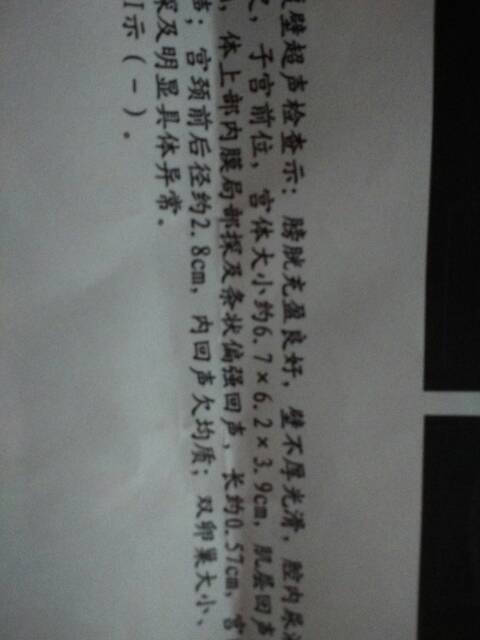 壁超声检查示：膀胱充盈良好，壁不厚光滑，腔内尿
，子宫前位，宫体大小约6.7×6.2×3.9cm，肌层回声
，体上部内膜局部探及条状偏强回声，长约0.57cm，宫
；宫颈前后径约2.8cm，内回声欠均质；双卵巢大小、
探及明显具体异常。
示（-）。